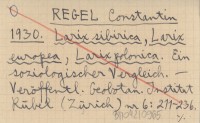 REGEL Constantin
1930. Larix sibirica, Larix
europea, Larix polonica. Ein
soziologischer Vergleich. —
Veröffentl. Geobotan. Institut
Rübel (Zürich) nr 6: 211-236.